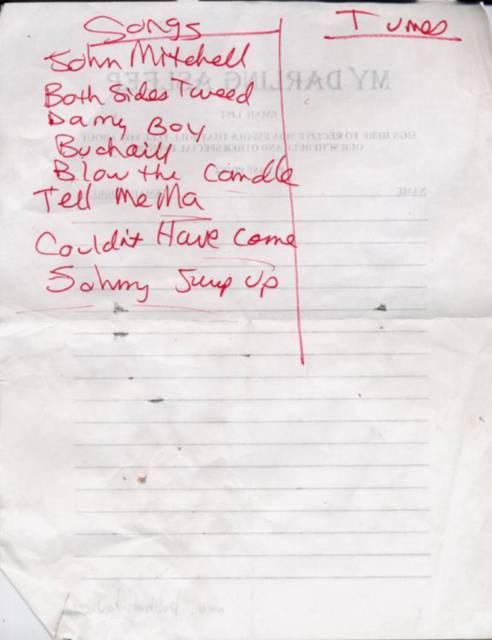 Songs
Tunes
John Mitchell
Both Sides Tweed
Danny Boy
Buchaill
Blow the Candle
Tell Me Ma
Couldn't Have Come
Johnny Jump Up
MY DARLING ASLEEP
EMAIL LIST
SIGN HERE TO RECEIVE
OUR SCHEDULE AND OTHER SPECIAL
NAME